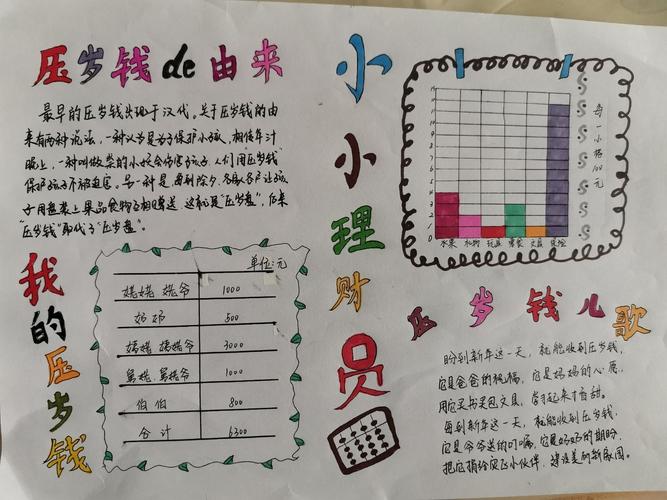 压岁钱de由来
最早的压岁钱出现于汉代。关于压岁钱的由
来有两种说法，一种认为是为了保护小孩，相传年
晚上，一种叫做祟的小妖会伤害孩子，人们用压岁钱
保护孩子不被迫害。另一种是每到除夕，各家各户让孩
子用盘装上果品食物互相赠送 这就是"压岁盘"，后来
"压岁钱"取代了"压岁盘"。
我的压岁钱
单位:元
姥姥 姥爷 1000
奶奶 500
3000
舅姥 舅姥爷 1000
伯伯 800
合计 6300
小小理财员
每一小格100元
15
1
水果 礼物 玩具 零食 文具
压岁钱儿歌
盼到新年这一天，就能收到压岁钱，
它是爸爸的祝福，它是妈妈的心愿，
用它买书买包文具，学习起来才香甜。
每到新年这一天，就能收到压岁钱，
它是爷爷送的叮嘱，它是奶奶的期盼，
把它捐给贫飞小伙伴，建设美丽新家园。